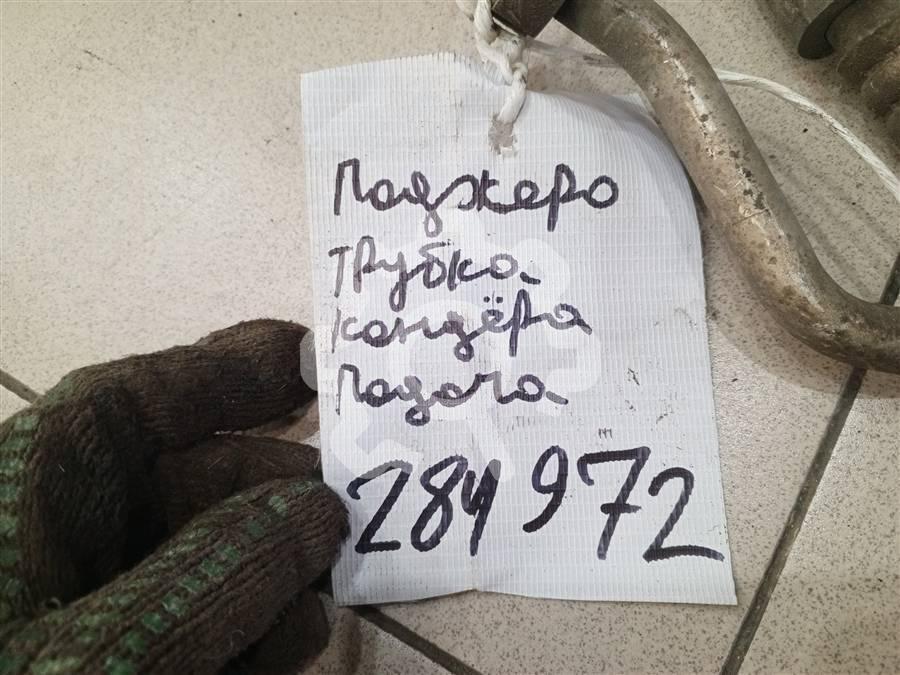 Паджеро
трубка
кондёра
Подача
284972